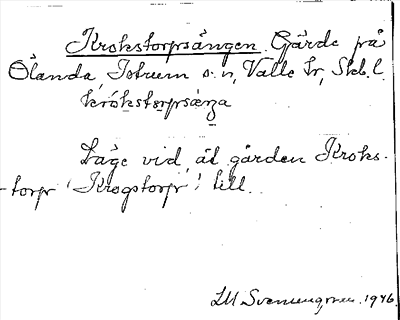 Krokstorpsängen Gärde på
Ölanda, Istrum s:n, Valle hr, Skb. l.
krókstorpsæŋa
Läge vid, åt gården Kroks-
torp 'Krogstorp' till.
LM Svennungsson 1946.